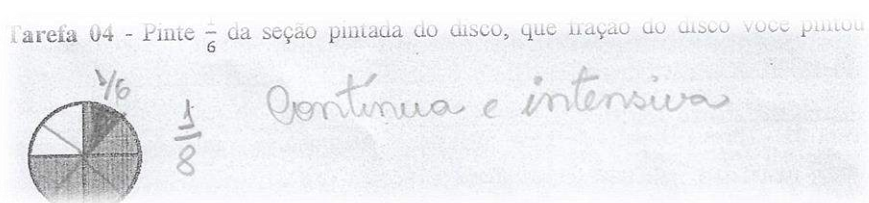 Tarefa 04 - Pinte 1/6 da seção pintada do disco, que fração do disco você pintou
1/6
1/8
Contínua e intensiva